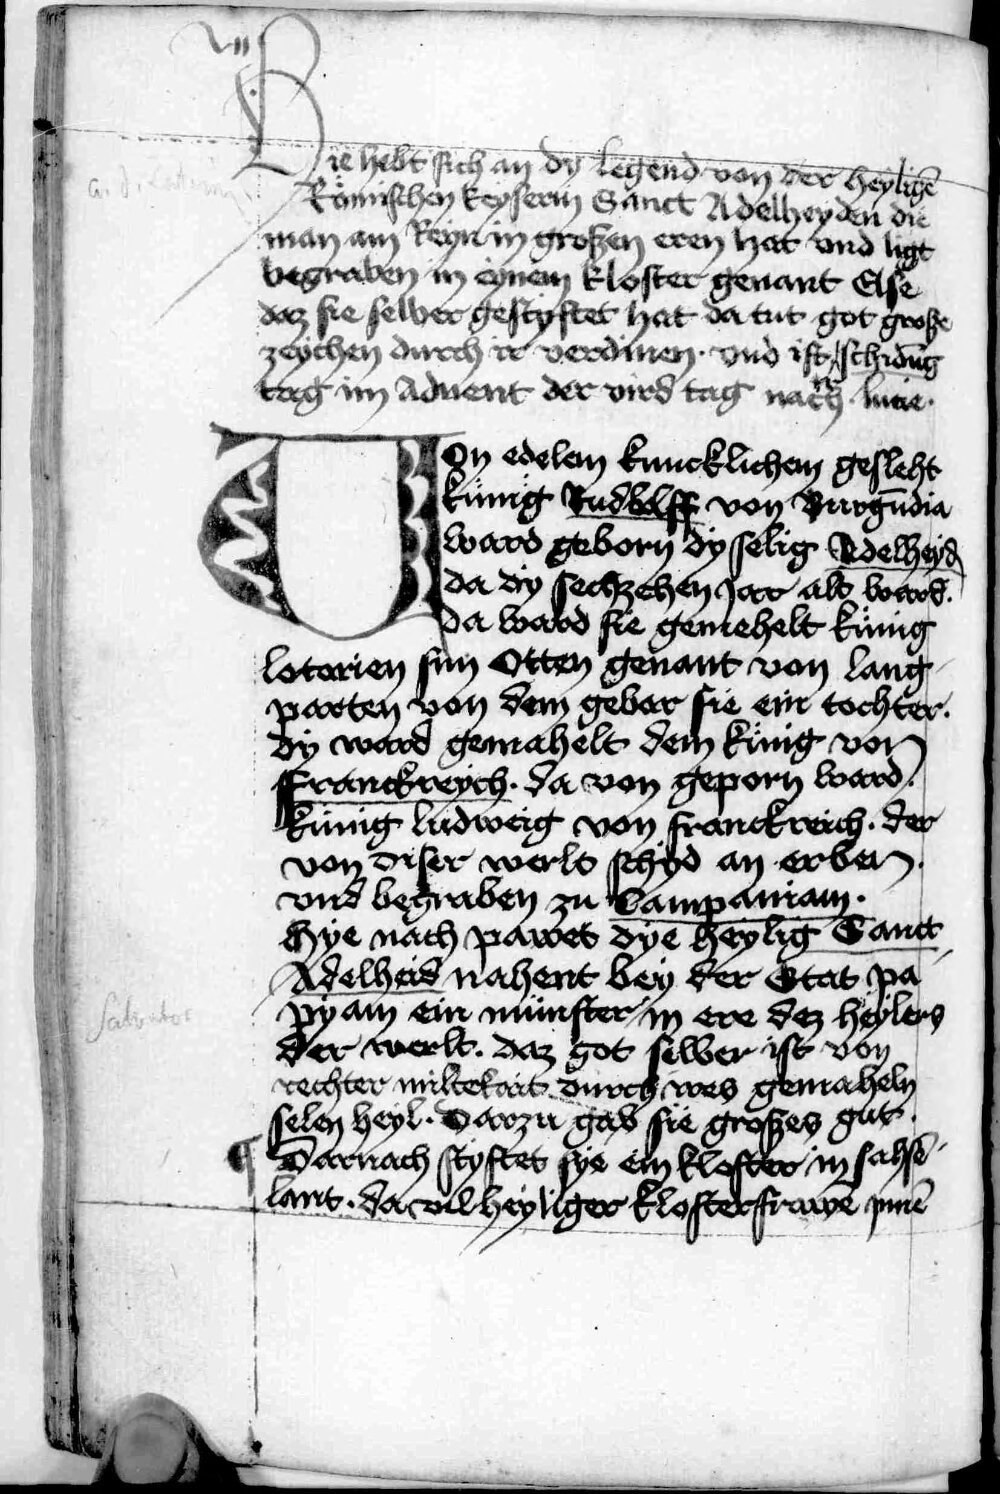 vij
Hie hebt sich an dy legend von der heyligē
Römischen keyserin Sanct Adelheyden die
man am Reyn in großen eren hat vnd ligt
begraben in eynem kloster genant Else
daz sie selber gestyftet hat da tut got große
zeychen durch ir verdinen. vnd ist ir schidūg
tag im Aduent der vird tag nach lucie.
Von edelem kuncklichem gesleht
künig Rudolff von Burgūdia
ward geborn dy selig Adelheyd
da dy sechzehen Jar alt ward.
da ward sie gemehelt künig
lotarien sun Otten genant von lang
parten von dem gebar sie ein tochter.
dy ward gemahelt dem künig von
Franckreych. da von geporn ward.
künig ludweig von franckreich. der
von diser werlt schyd an erben.
vnd begraben zu Campaniam.
Hye nach pawet dye heylig Sanct
Adelheid nahent bey der Stat pa
pyam ein münster in ere dez heylers
der werlt. daz got selber ist von
rechter miltekait durch ires gemaheln
selen heyl. Darzu gab sie großes gut.
¶ Darnach styftet sye ein kloster in sahsē
lant. da vil heyliger klosterfrawē
Saluator